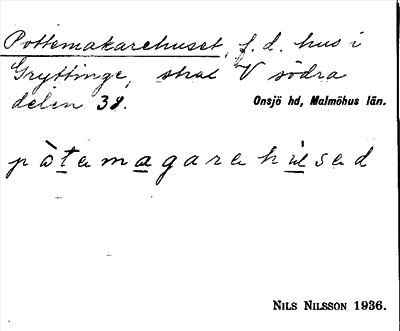 Pottemakarehuset, f.d. hus i
Gryttinge, strax V södra
delen 38. Onsjö hd, Malmöhus län.
pòtemagarehùsed
NILS NILSSON 1936.